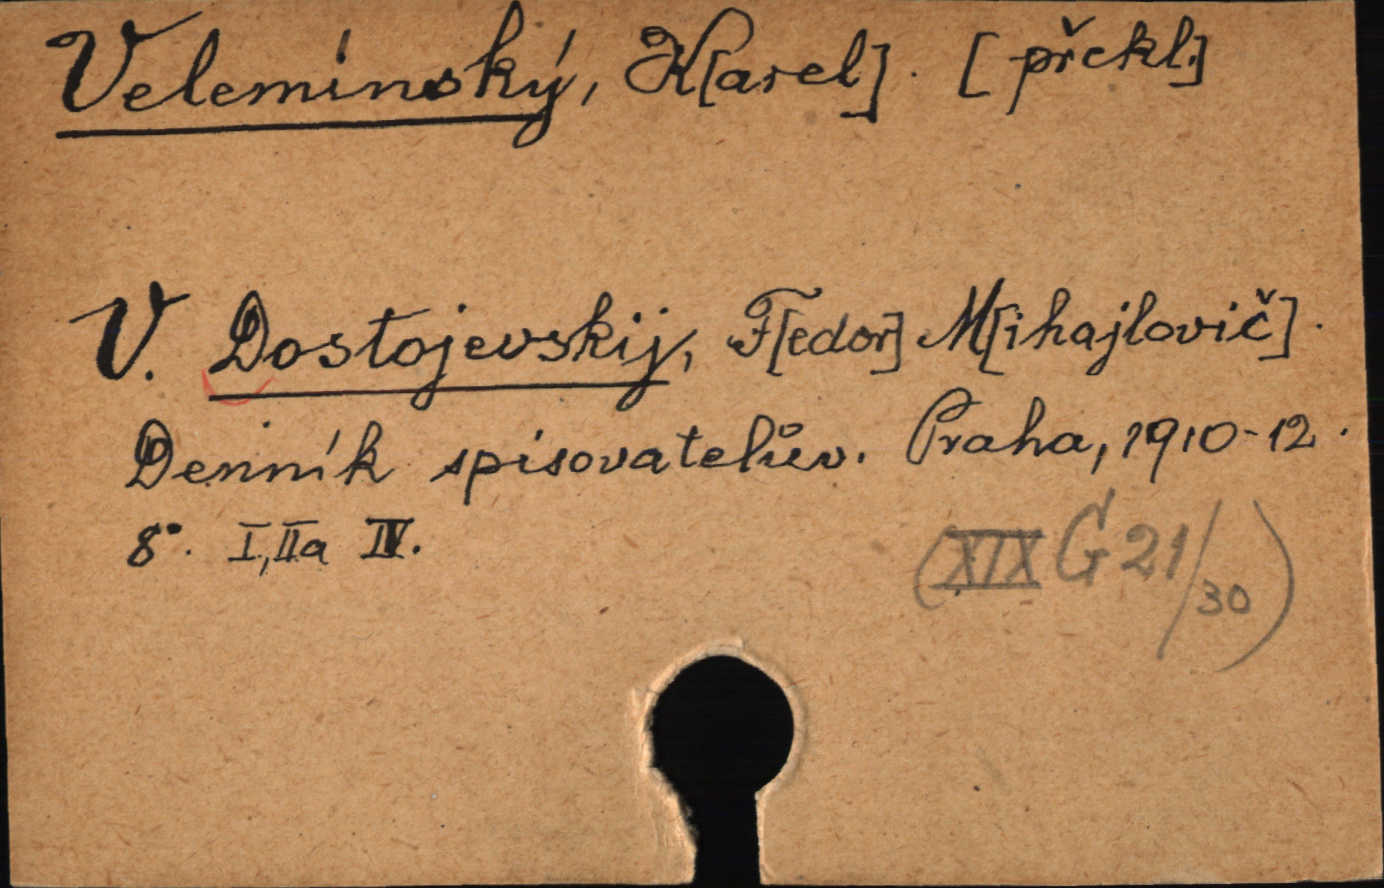 Velemínský, K[arel]. [překl.]
V. Dostojevskij, F[edor] M[ihajlovič].
Denník spisovatelův. Praha, 1910-12.
8°. I, IIa IV.
(XIX G 21/30)